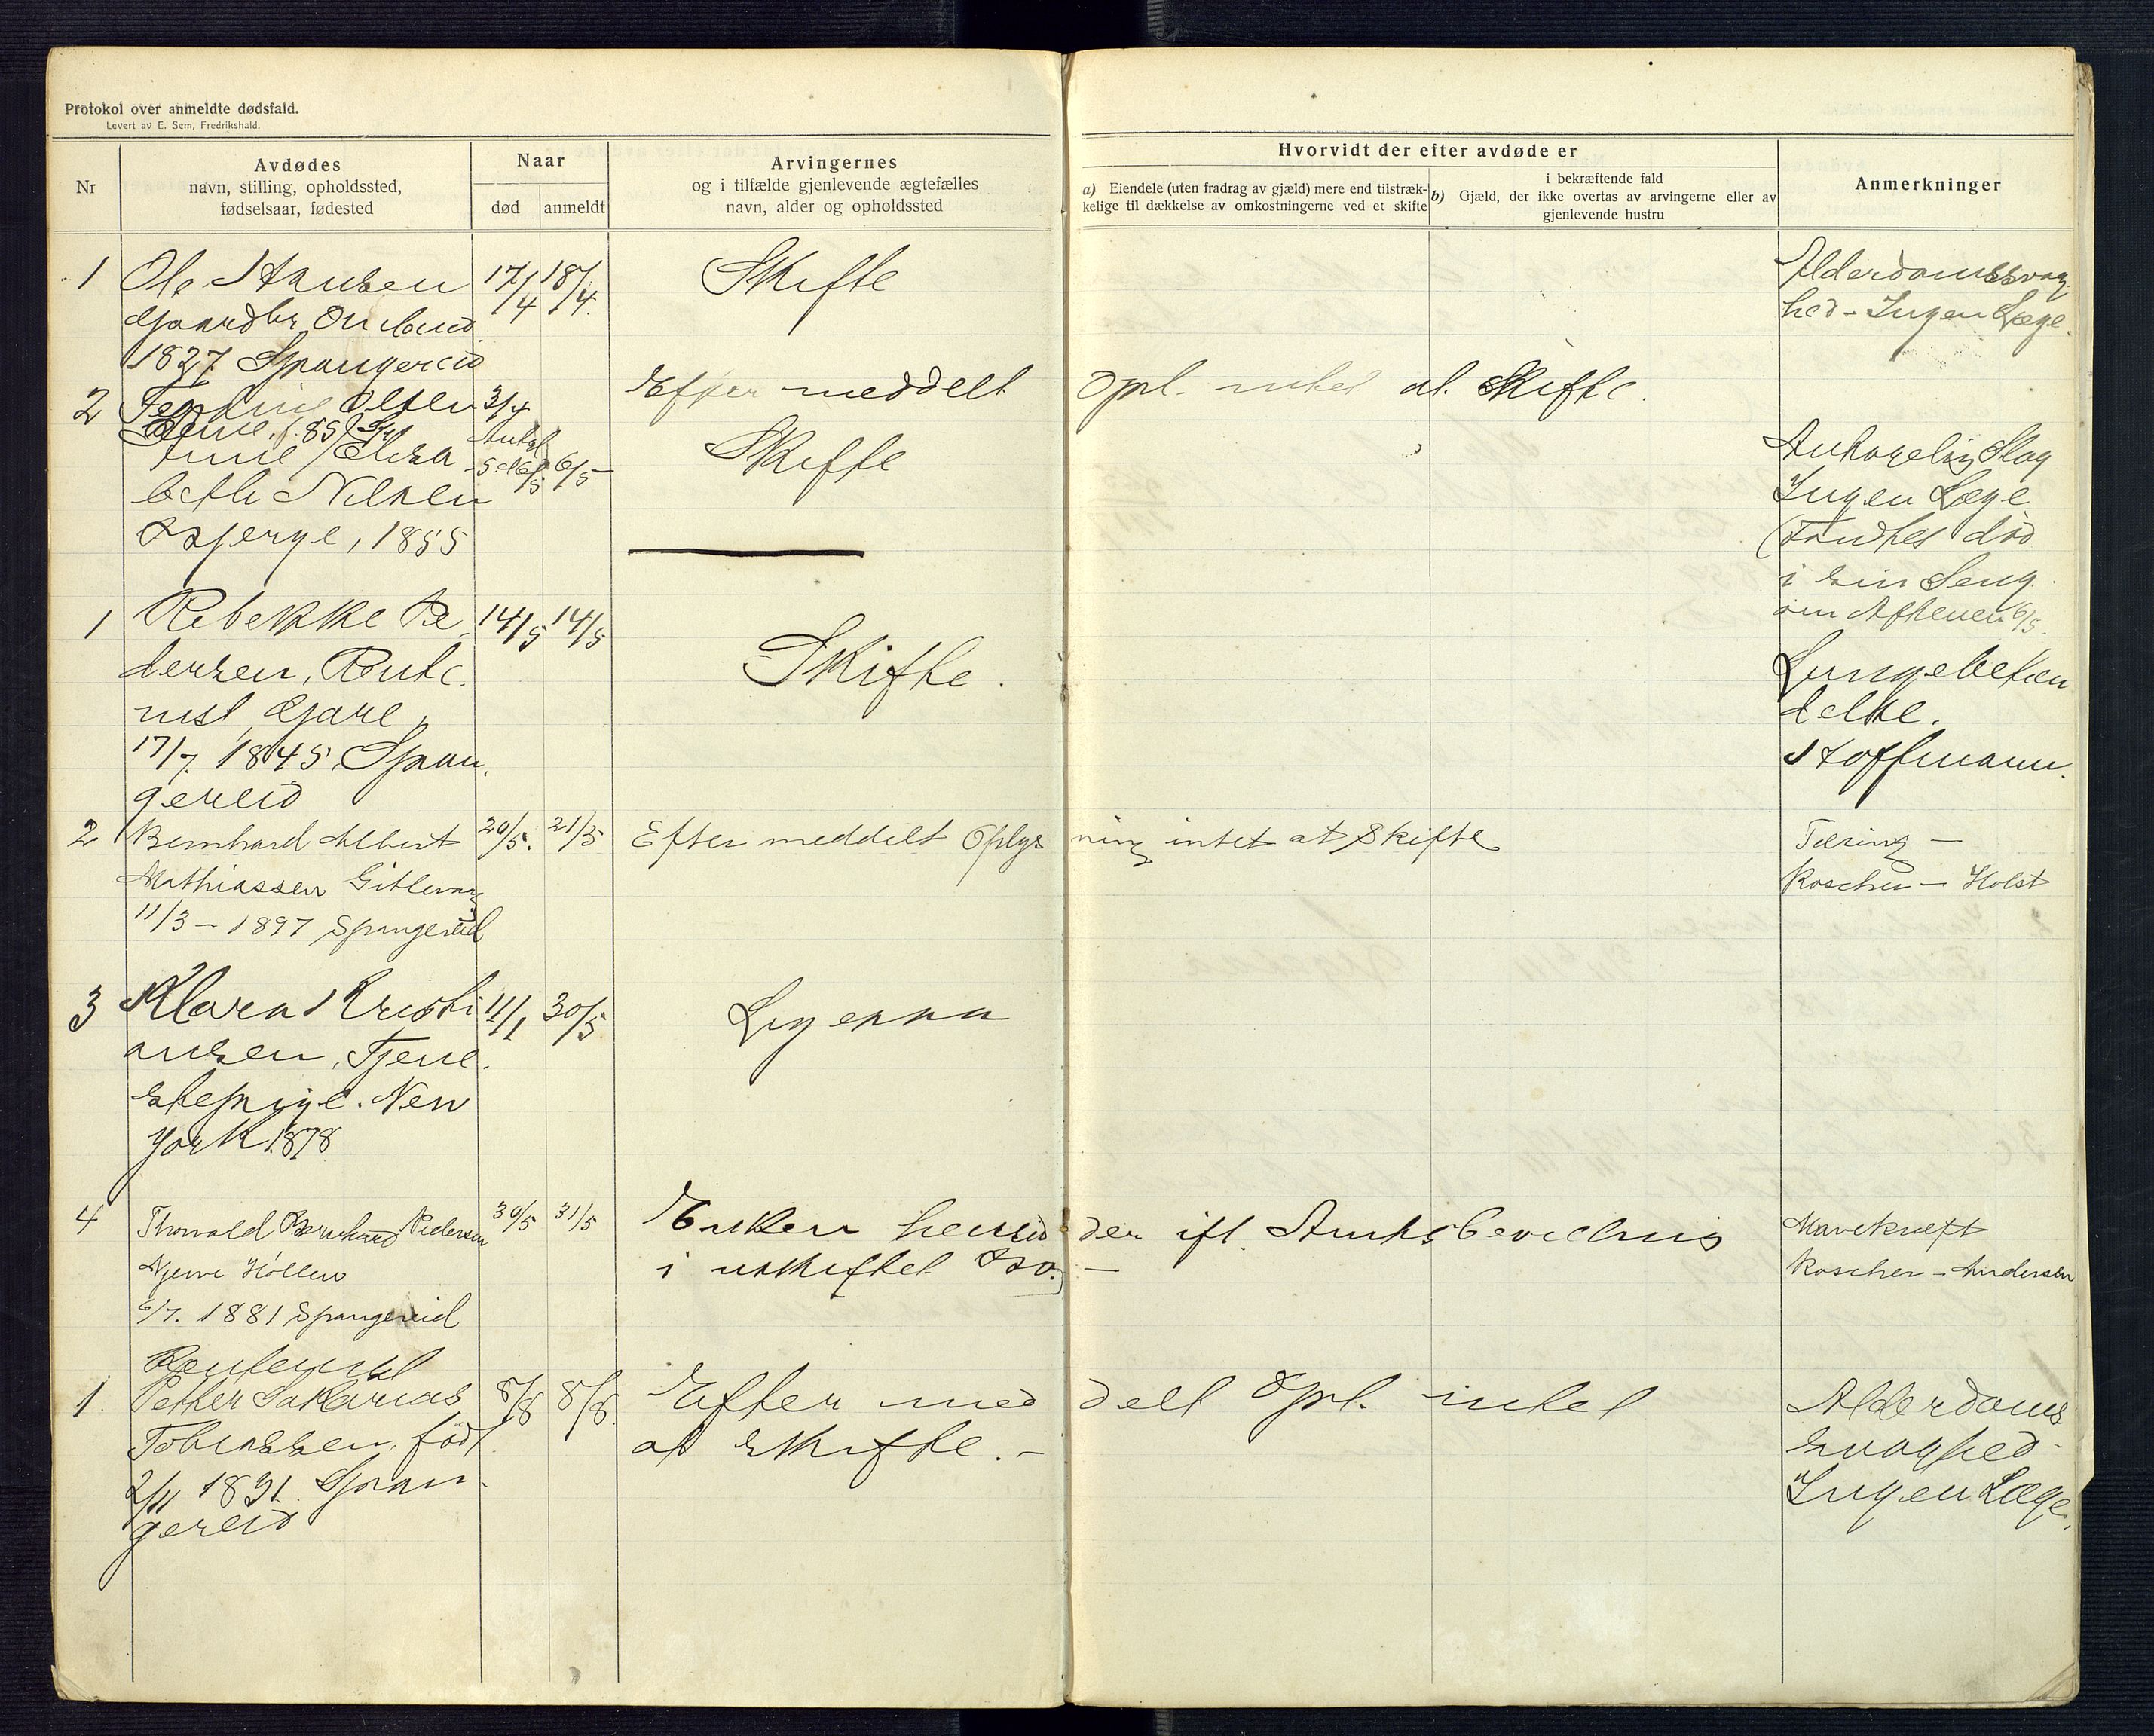 Protokol over anmeldte dødsfald.
Levert av E. Sem, Fredrikshald.
Nr
Avdødes
navn, stilling, opholdssted,
fødselsaar, fødested
Naar
død
anmeldt
Arvingernes
og i tilfælde gjenlevende ægtefælles
navn, alder og opholdssted
Hvorvidt der efter avdøde er
a) Eiendele (uten fradrag av gjæld) mere end tilstræk-
kelige til dækkelse av omkostningerne ved et skifte
i bekræftende fald
b) Gjæld, der ikke overtas av arvingerne eller av
gjenlevende hustru
Anmerkninger
1 Ole Hansen 17/4 18/4 Skifte Alderdomssvag
Gaardbr. hed - Ingen Læge.
1827 Spangereid
2 Olsen 3/4 Efter meddelt Opl. intet at Skifte.
Elisa 6/5 Skifte Slag
beth Nilsen Ingen Læge
1855 (Fandtes død
i sin Seng
om Aftenen 6/5.
1 Rebekke Pe 14/5 14/5 Skifte. Lungebetæn
dersen, Rente. delse.
nist, Gare, Hoffmann.
17/7. 1845. Span.
gereid
2 Bernhard Albert 20/5. 21/5 Efter meddelt Oplysning intet at Skifte Tæring -
Mathiassen Roscher - Holst
11/3 - 1897 Spangereid
3 Klara Kristi 11/1 30/5 Ligesaa
ansen, Tjene.
stepige. New
York 1878
4 Thorvald Bernhard Pedersen 30/5 31/5 Enken hensidder ifl. Amtsbevilling Mavekræft
Njerve Høllen i uskiftet Bo. - Roscher - Andersen
6/7. 1881 Spangereid
Rentenist
1. Petter Sakarias 8/8 8/8. Efter meddelt Opl. intet Alderdoms
Tobiassen, født at skifte. - svaghed -
2/11 1831. Span- Ingen Læge.
gereid